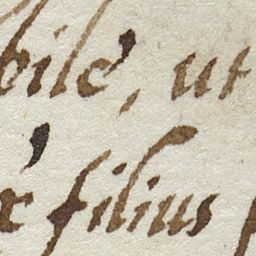 bilé, ut
filius